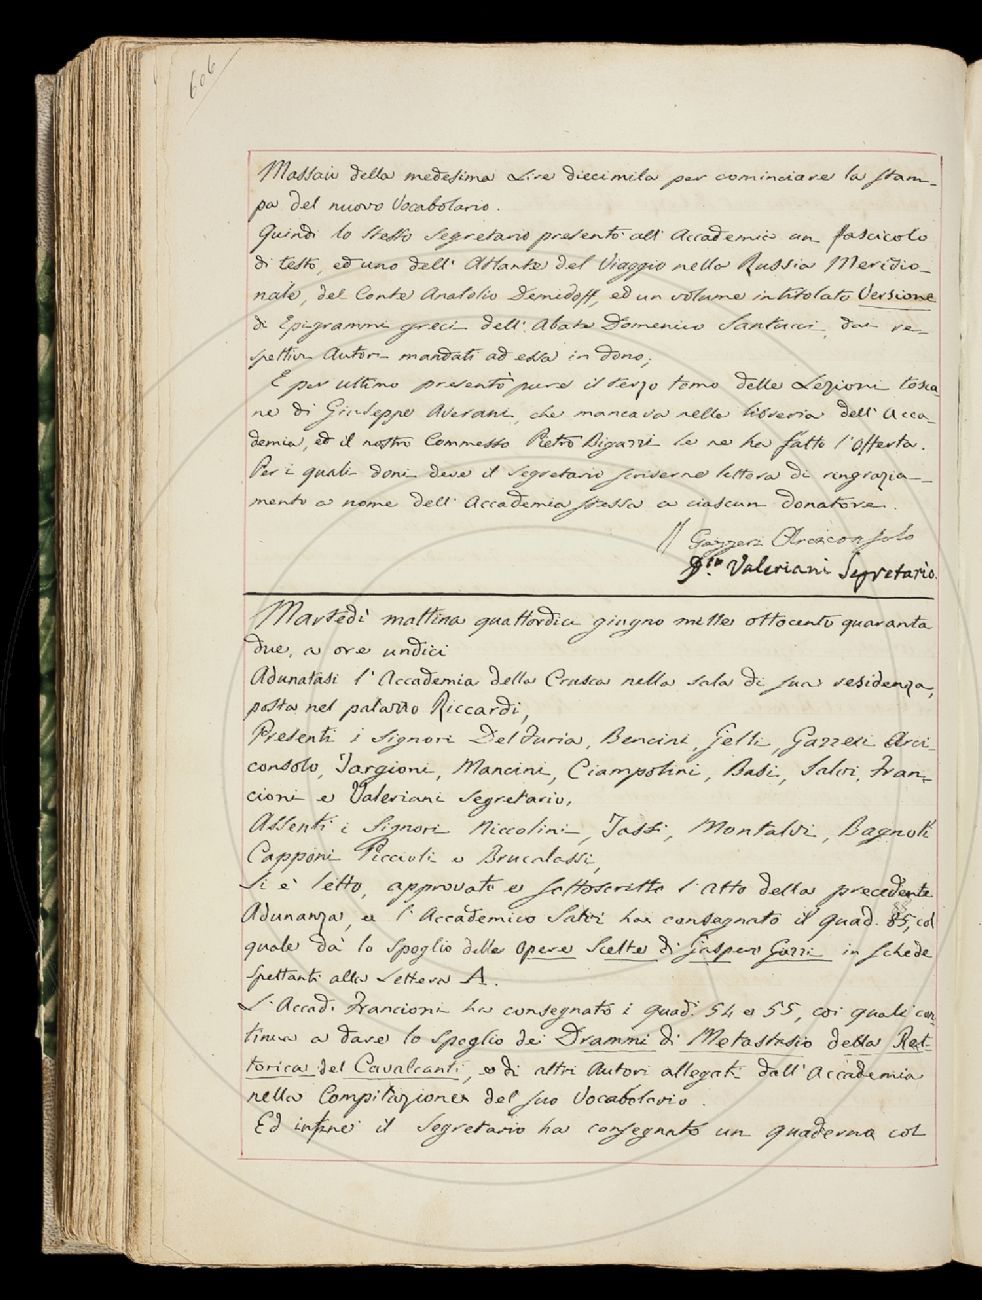 606
Massaio della medesima Lire diecimila per cominciare la stam-
pa del nuovo Vocabolario.
Quindi lo stesso Segretario presentò all' Accademia un fascicolo
di testo, ed uno dell' Atlante del Viaggio nella Russia Meridio-
nale, del Conte Anatolio Demidoff, ed un volume intitolato Versione
di Epigrammi greci dell' Abate Domenico Santucci, dai re-
spettivi Autori mandati ad essa in dono;
E per ultimo presentò pure il terzo tomo delle Lezioni tosca-
ne di Giuseppe Averani, che mancava nella libreria dell' Acca-
demia, ed il nostro Commesso Pietro Bigazzi le ne ha fatto l'offerta.
Per i quali doni deve il Segretario scriverne lettera di ringrazia-
mento a nome dell' Accademia stessa a ciascun donatore.
Gazzeri Arciconsolo
Valeriani Segretario.
Martedì mattina quattordici giugno mille ottocento quaranta
due, a ore undici
Adunatasi l'Accademia della Crusca nella sala di sua residenza,
posta nel palazzo Riccardi,
Presenti i Signori Del Furia, Bencini, Gelli, Gazzeri Arci-
consolo, Targioni, Mancini, Ciampolini, Basi, Salvi, Fran-
cioni e Valeriani Segretario,
Assenti i Signori Niccolini, Tassi, Montalvi, Bagnoli
Capponi Piccioli e Brucalassi,
Si è letto, approvato e sottoscritto l'atto della precedente
Adunanza, e l'Accademico Salvi ha consegnato il quad. 85, col
quale dà lo spoglio delle Opere Scelte di Gasper Gozzi in schede
spettanti alla Lettera A.
L'Accad. Francioni ha consegnato i quad. 54 e 55, coi quali con-
tinua a dare lo spoglio dei Drammi di Metastasio della Ret-
torica del Cavalcanti, e di altri Autori allegati dall' Accademia
nella Compilazione del suo Vocabolario.
Ed infine il Segretario ha consegnato un quaderno col